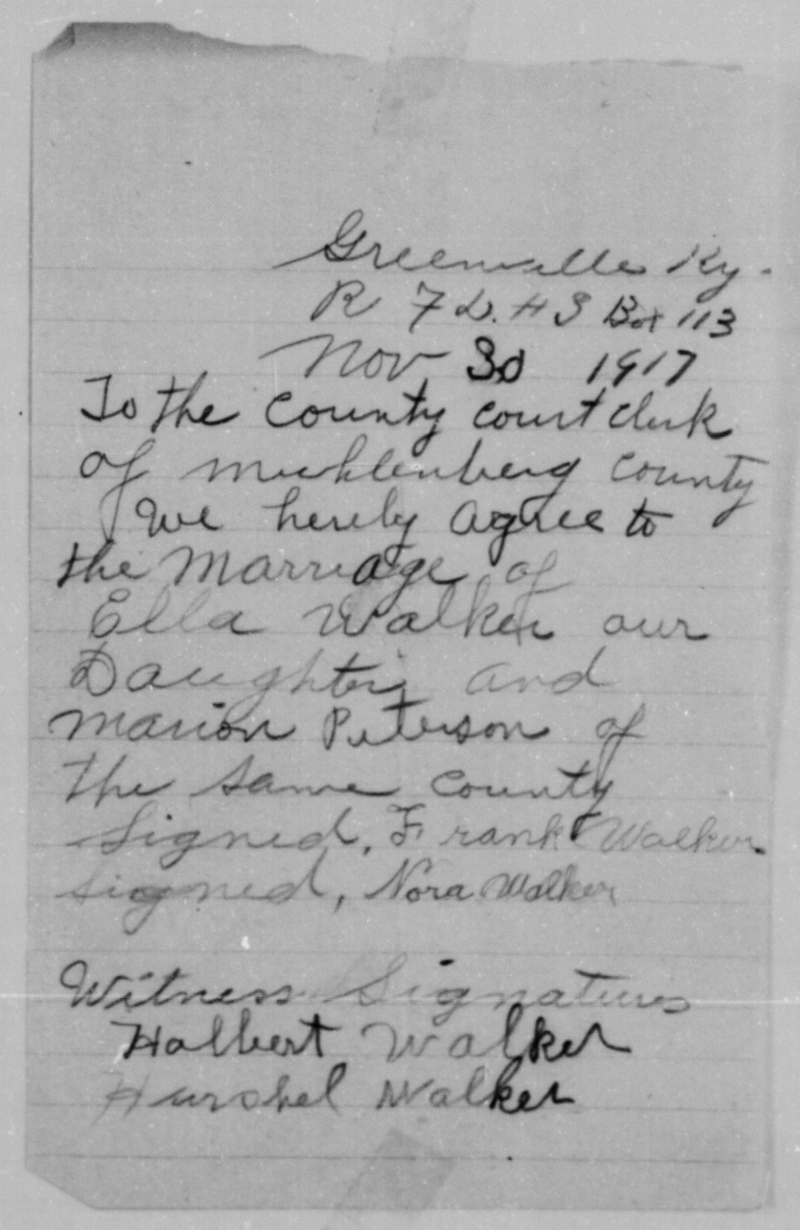 Greenville Ky.
R F D. # 3 Box 113
Nov 30 1917
To the County court clerk
of Muhlenberg County
We hereby agree to
the Marriage of
Ella Walker our
Daughter and
Marion Peterson of
the same County
Signed, Frank Walker.
Signed, Nora Walker
Witness Signatures
Halbert Walker
Hurshel Walker